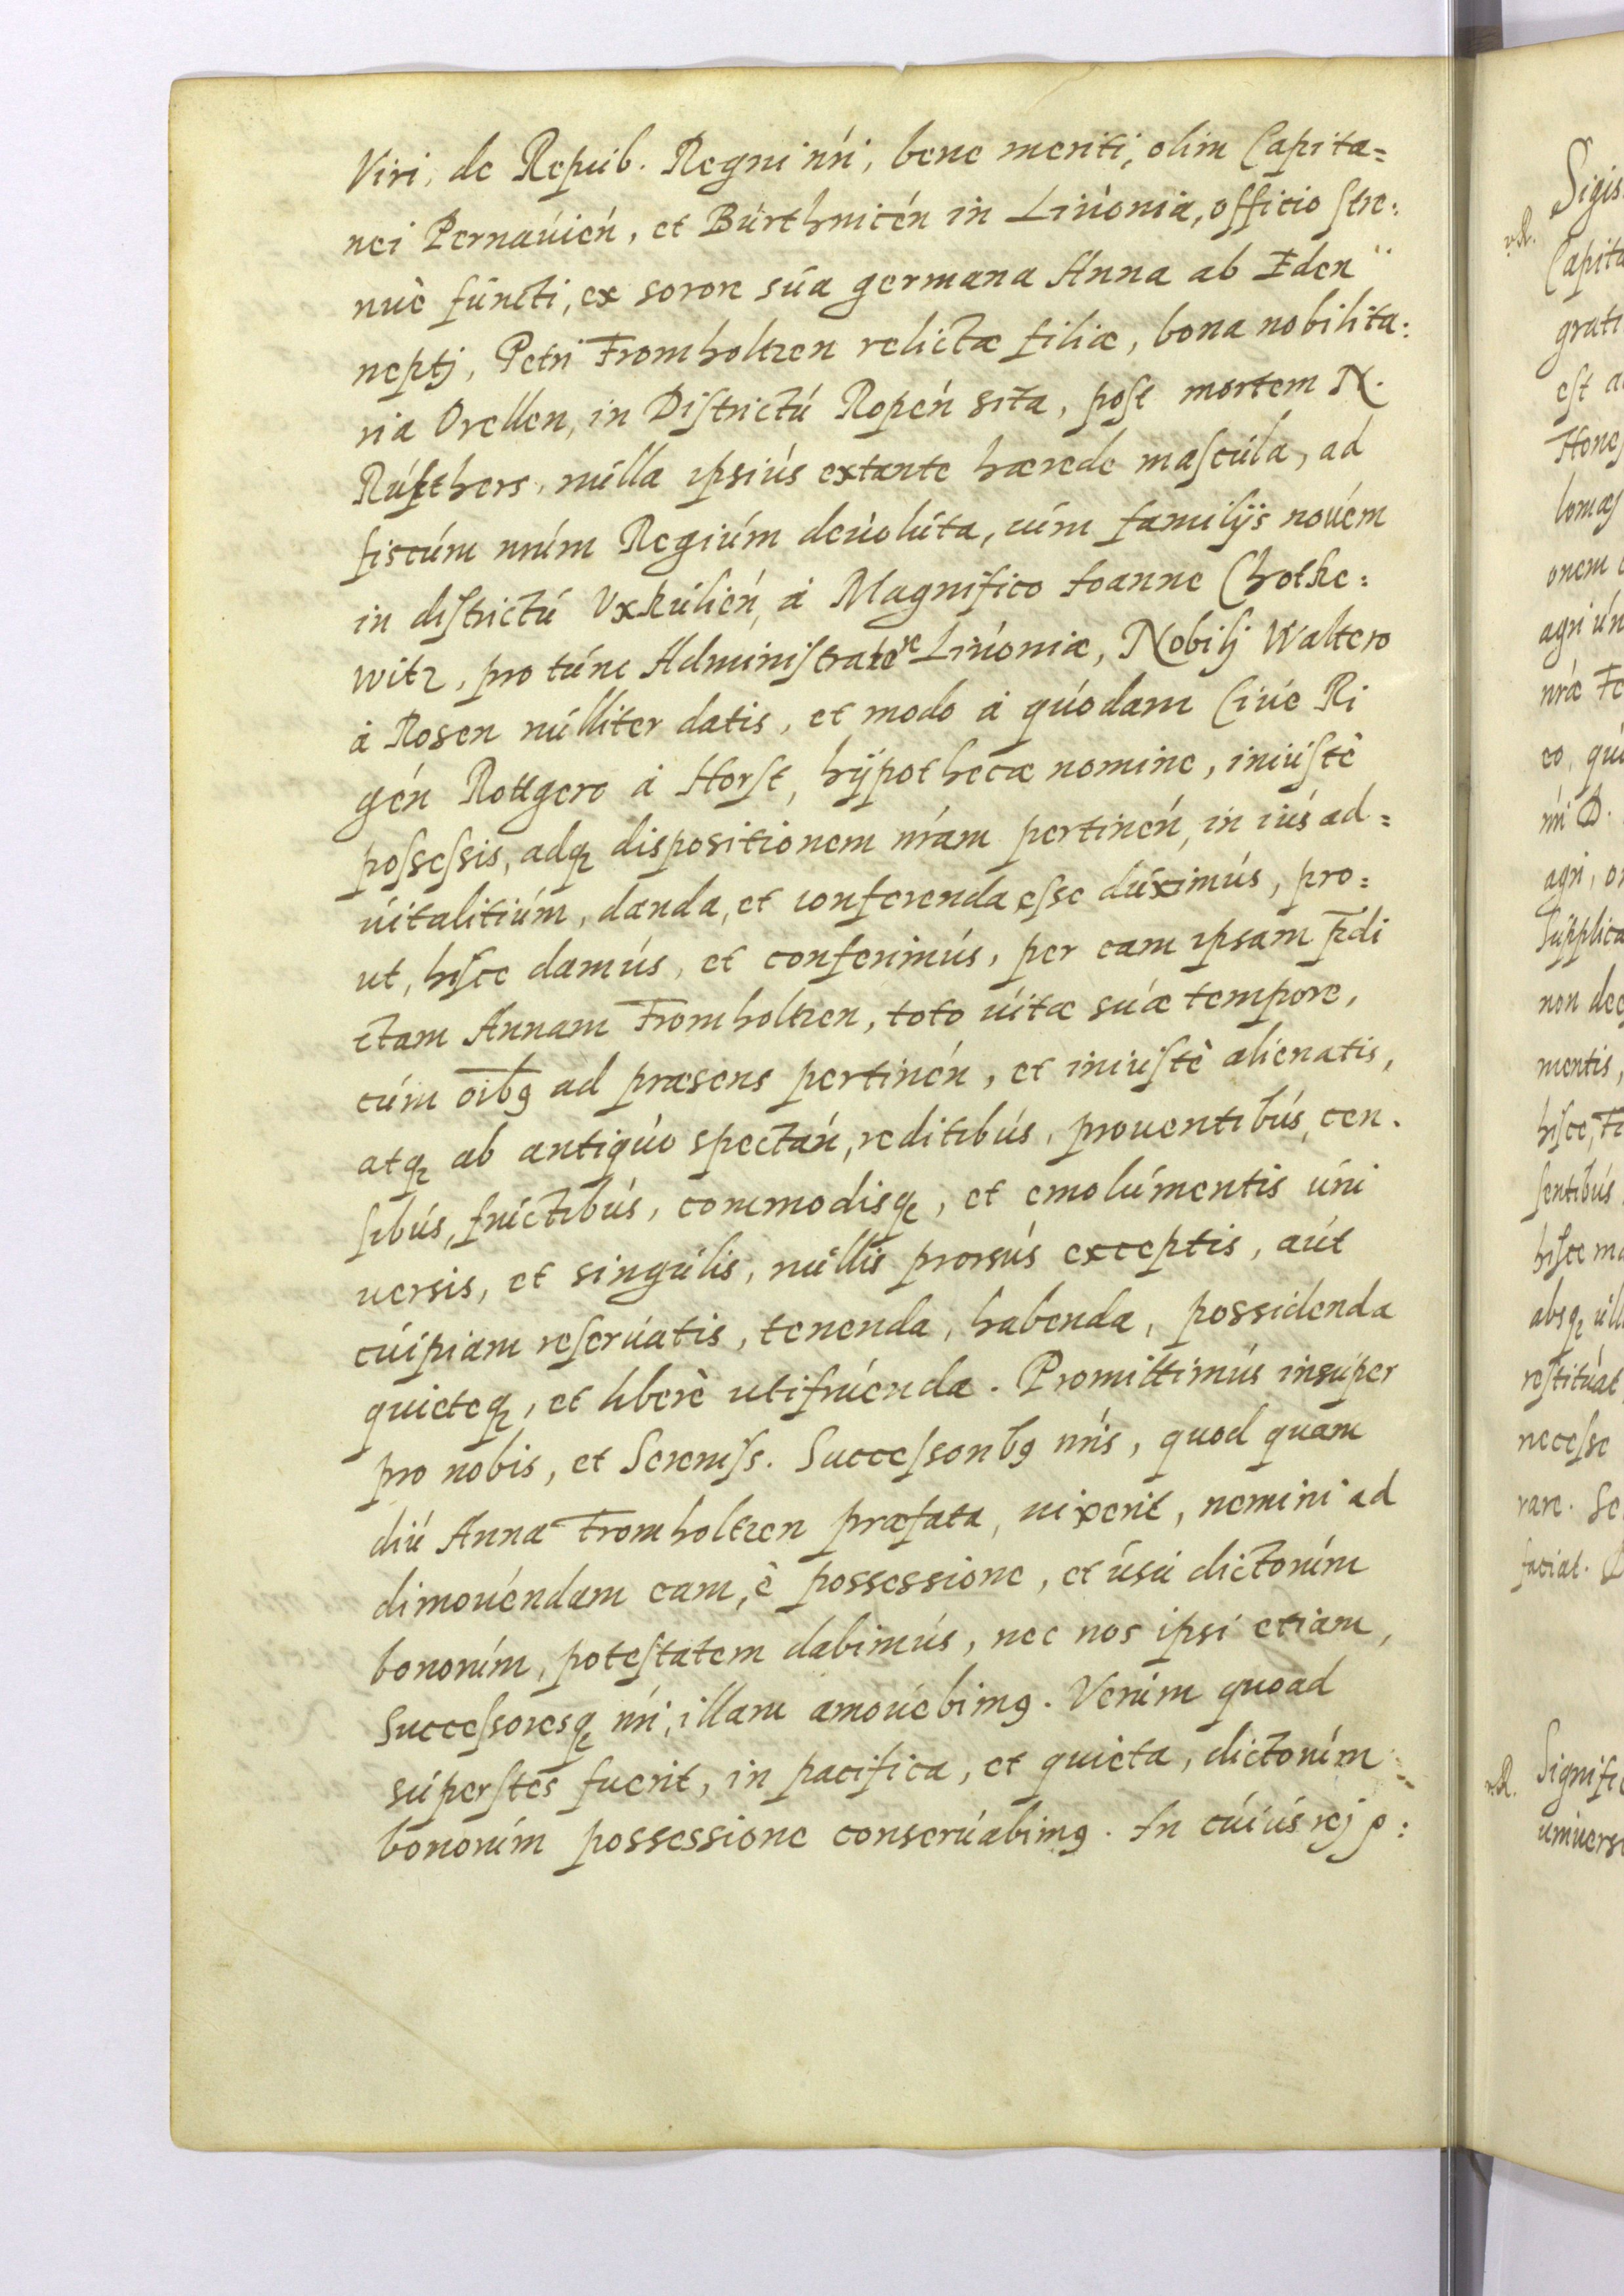 Viri, de Repub. Regni nŕi, bene meriti, olim Capita=
nei Pernauień, et Burthniceń in Liuonia, officio stre:
nuè functi, ex sorore sua germana Anna ab Eden
neptj, Petri Fromholtzen relictæ filiæ, bona nobilita:
ria Orellen, in Districtu Ropeń sita, post mortem N.
Rusthers, nulla ipsius extante hærede mascula, ad
fiscum nrúm Regium deuoluta, cum familijs nouem
in districtu Vxkulień, à Magnifico Joanne Chotke:
witz, pro tunc Administratore Liuoniæ, Nobilj Waltero
à Rosen nulliter datis, et modo à quodam Ciue Ri
geń Rottgero à Horst, hÿpothecæ nomine, iniustè
possessis, adq₃ dispositionem nŕam pertineń, in ius ad=
uitalitium, danda, et conferenda esse duximus, pro:
ut, hisce damus, et conferimus, per eam ipsam p̄di
ctam Annam Fromholtzen, toto uitæ suæ tempore,
cum oīb₉ ad præsens pertineń, et iniustè alienatis,
atq₃ ab antiquo spectań, reditibus, prouentibus, cen.
sibus, fructibus, commodisq₃, et emolumentis uni
uersis, et singulis, nullis prorsus exceptis, aut
cuipiam reseruatis, tenenda, habenda, possidenda
quieteq₃, et liberè utifruenda. Promittimus insuper
pro nobis, et Sereniss. Successorib₉ nŕis, quod quam
diu Anna Fromholtzen præfata, uixerit, nemini ad
dimouendam eam, è possessione, et usu dictorum
bonorum, potestatem dabimus, nec nos ipsi etiam,
Successoresq₃ nŕi, illam amouebim₉. Verum quoad
superstes fuerit, in pacifica, et quieta, dictorum
bonorum possessione conseruabim₉. In cuius rej p:
Sigis
Capita
grati
est a
Hones
onem
agri
nŕæ
co, qui
nŕi D.
agri, o
Supplica
non dec
mentis,
hisce,
sentibus
hisce ma
absq₃ ull
restituat
necesse
rare. Se
faciat.
Signific
uniuersi